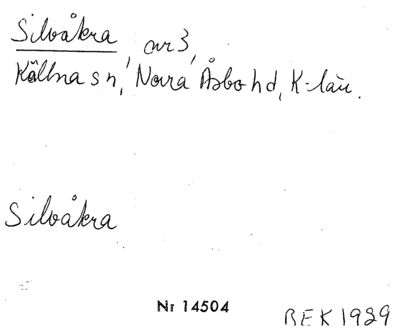 Silvåkra, nr 3,
Källna sn, Norra Åsbo hd, K-län.
Silvåkra
Nr 14504
BEK 1929